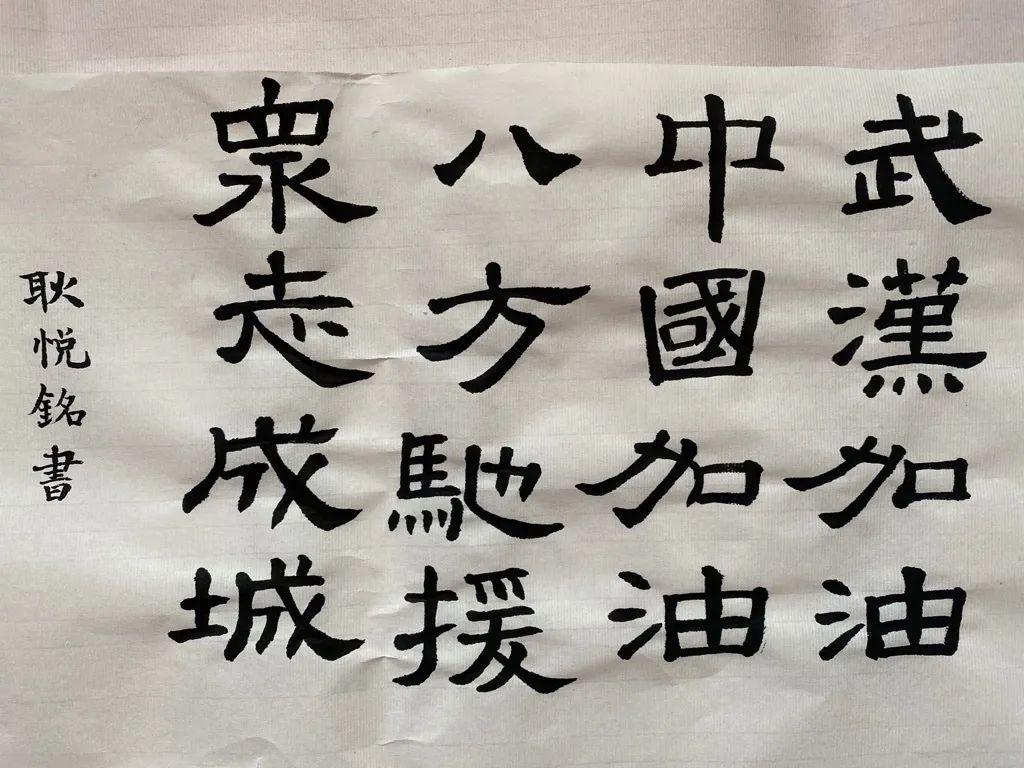 武漢加油
中國加油
八方馳援
眾志成城
耿悅銘書